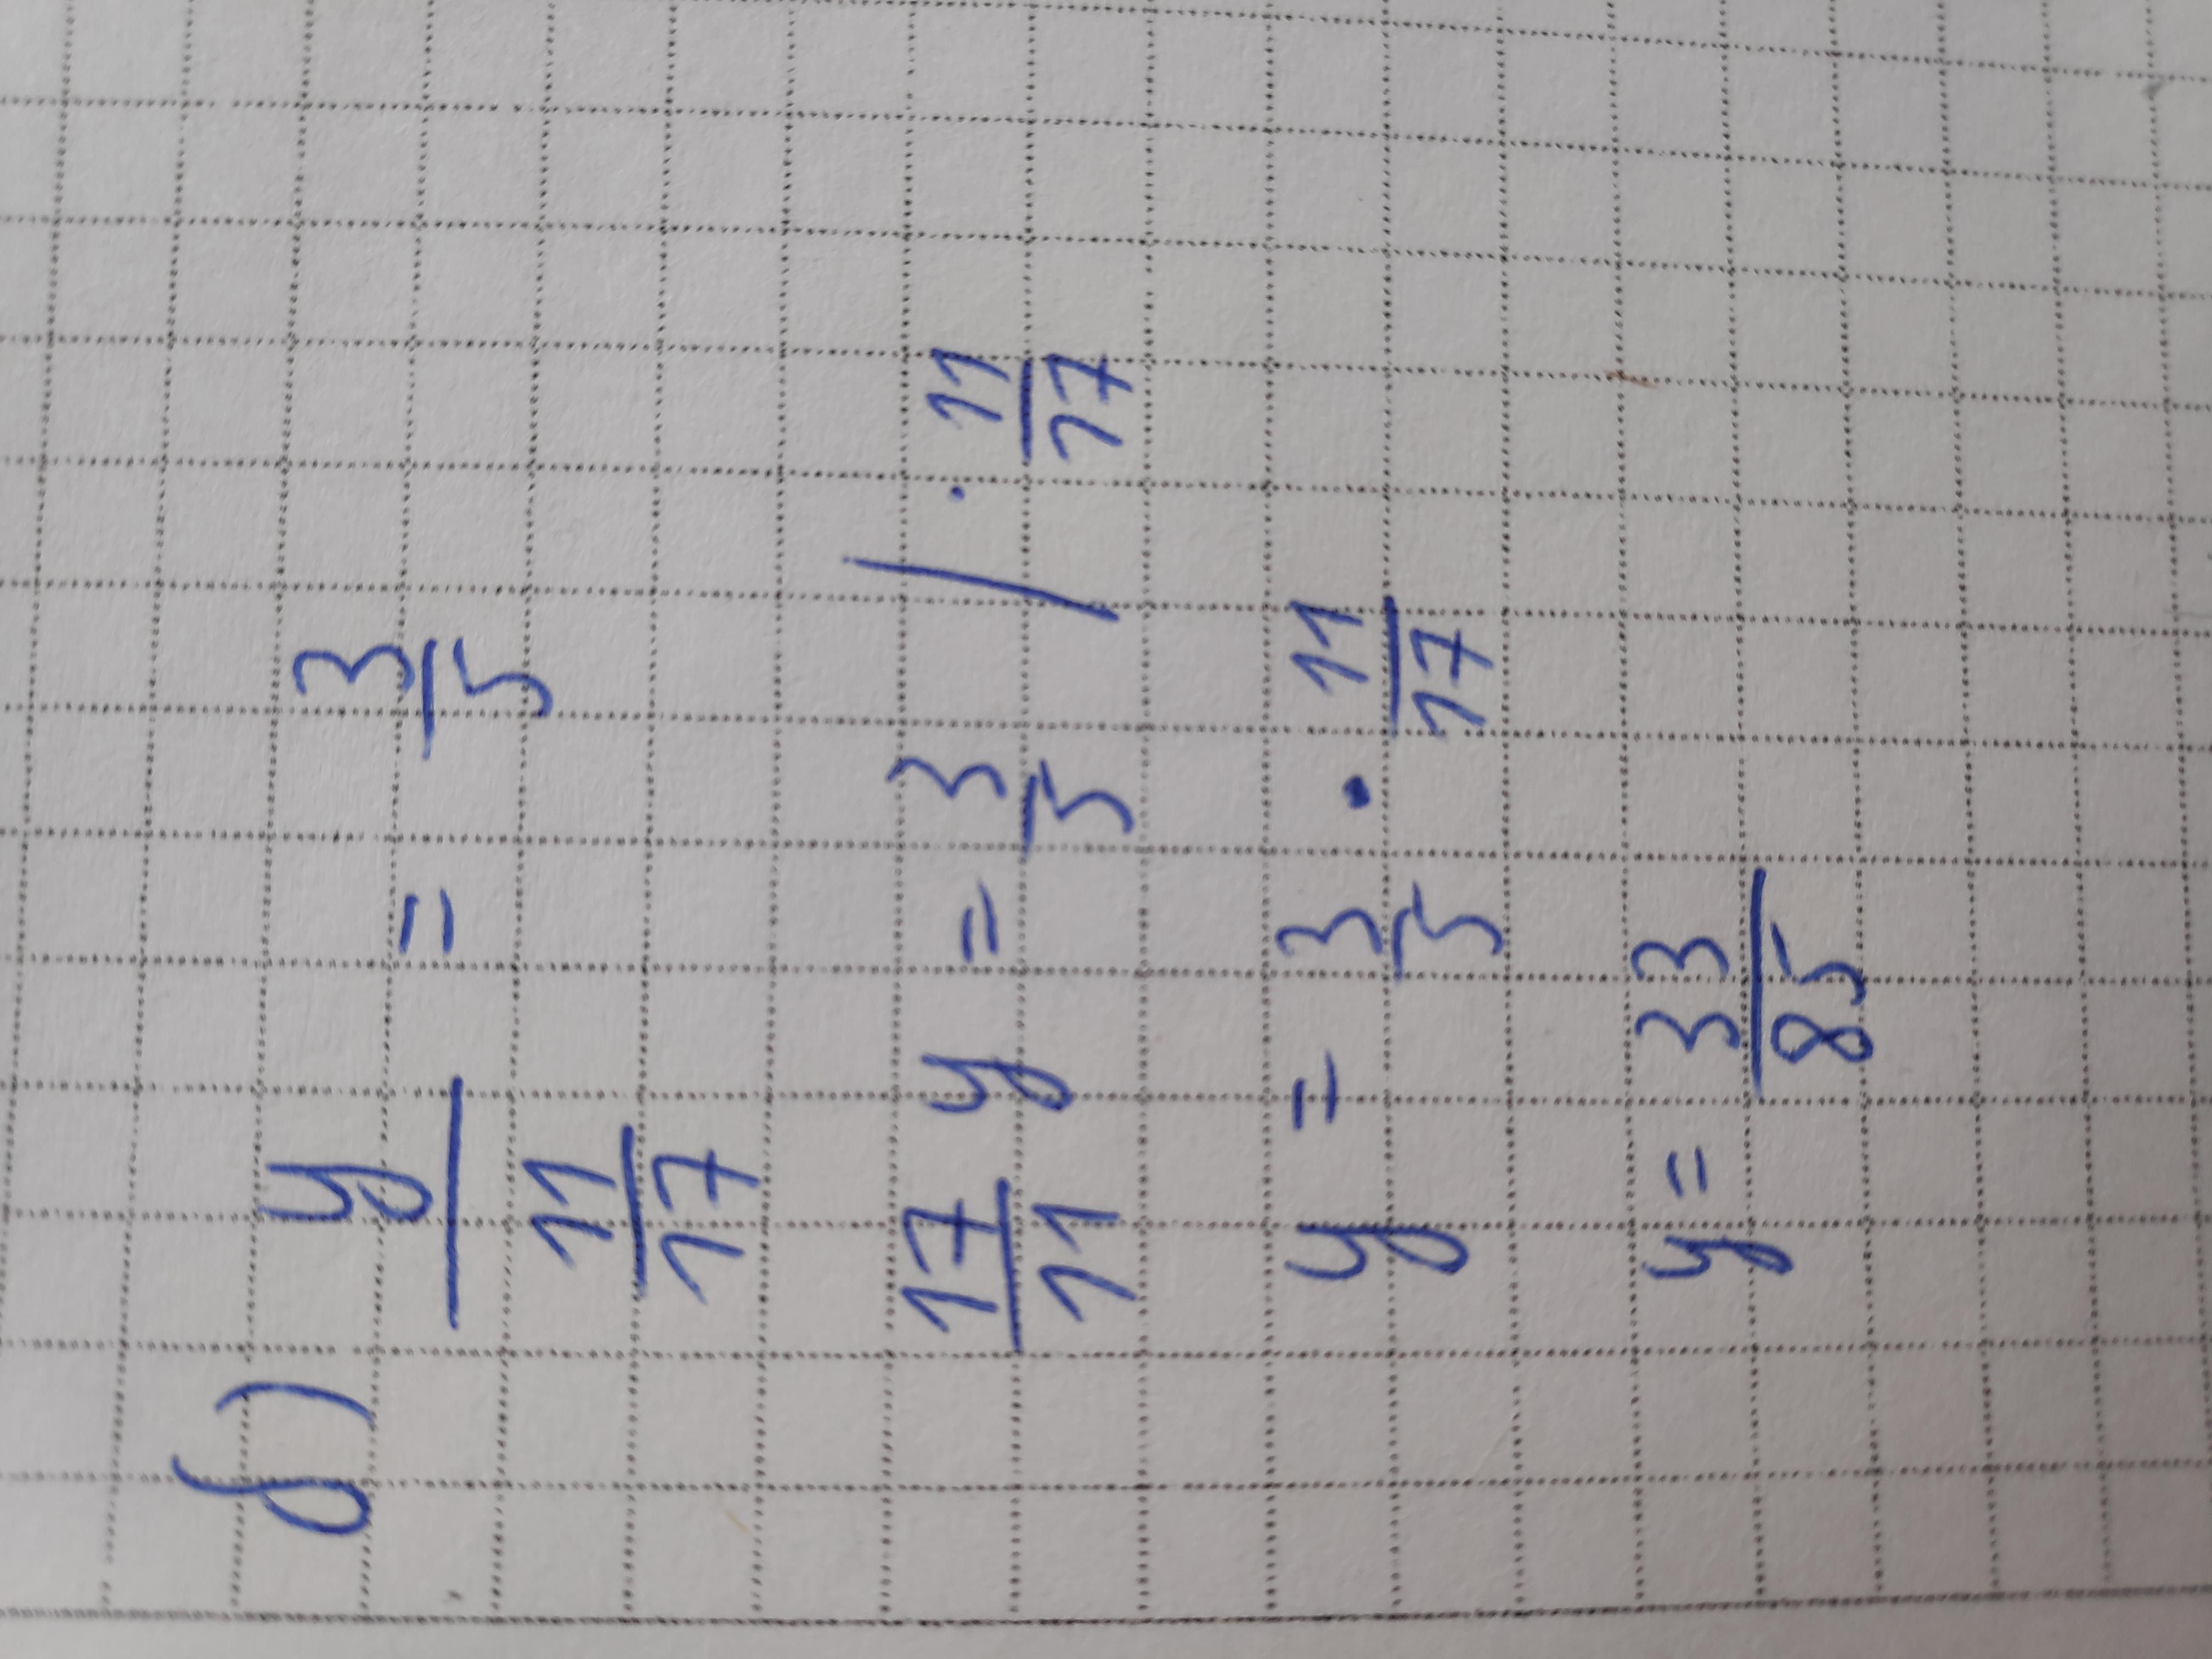 6) y/(11/17) = 3/5
17/11 y = 3/5 / · 11/17
y = 3/5 · 11/17
y = 33/85